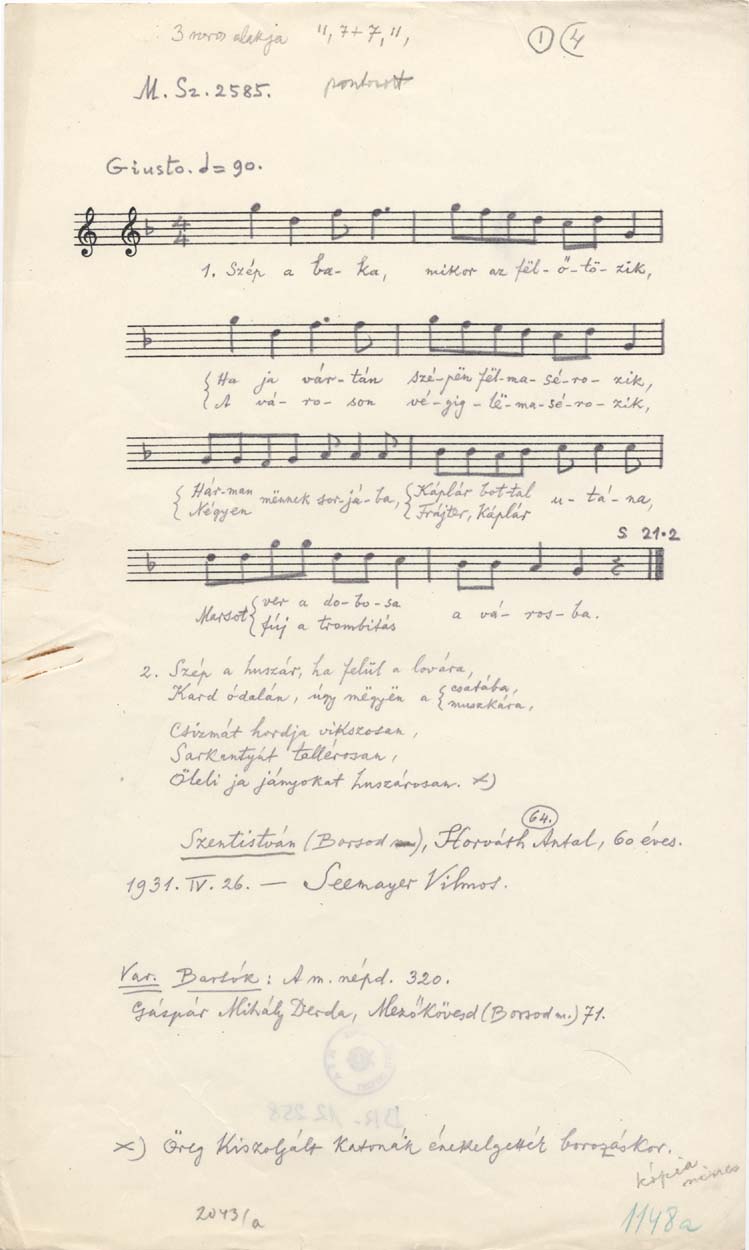 3 soros alakja 11, 7+7, 11, 1 4
M. Sz. 2585. pontozott
Giusto. d = 90.
1. Szép a ba- ka, mikor az föl- ő- tö- zik,
Ha ja vár- tán szé- pën föl- ma- sé- ro- zik,
A vá- ro- son vé- gig- lë- ma- sé- ro- zik,
Hár- man mënnek sor- já- ba, Káplár bot- tal u- tá- na,
Négyen Frájter, Káplár
S 21.2
Marsot ver a do- bo- sa a vá- ros- ba.
fúj a trombitás
2. Szép a huszár, ha felül a lovára,
Kard ódalán, úgy mëgyën a csatába,
muszkára,
Csizmát hordja vikszosan,
Sarkantyút tallérosan,
Öleli ja jányokat huszárosan. x)
64.
Szentistván (Borsod m), Horváth Antal, 60 éves.
1931. IV. 26. — Seemayer Vilmos.
Var. Bartók: A m. népd. 320.
Gáspár Mihály Derda, Mezőkövesd (Borsod m.) 71.
BR. 12 258
x) Öreg Kiszolgált Katonák énekelgették borozáskor.
kópia
nincs
2043/a
1148a